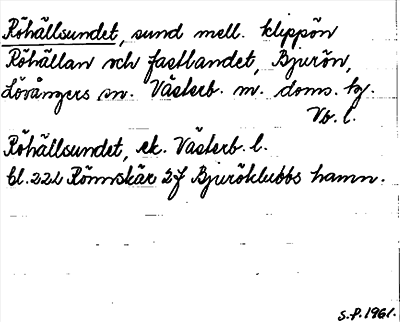 Röhällsundet, sund mell. klippön
Röhällan och fastlandet, Bjurön,
Lövångers sn. Västerb. m. doms. tg.
Vb. l.
Röhällsundet, ek. Västerb. l.
bl. 222 Rönnskär 2f Bjuröklubbs hamn.
S.P. 1961.